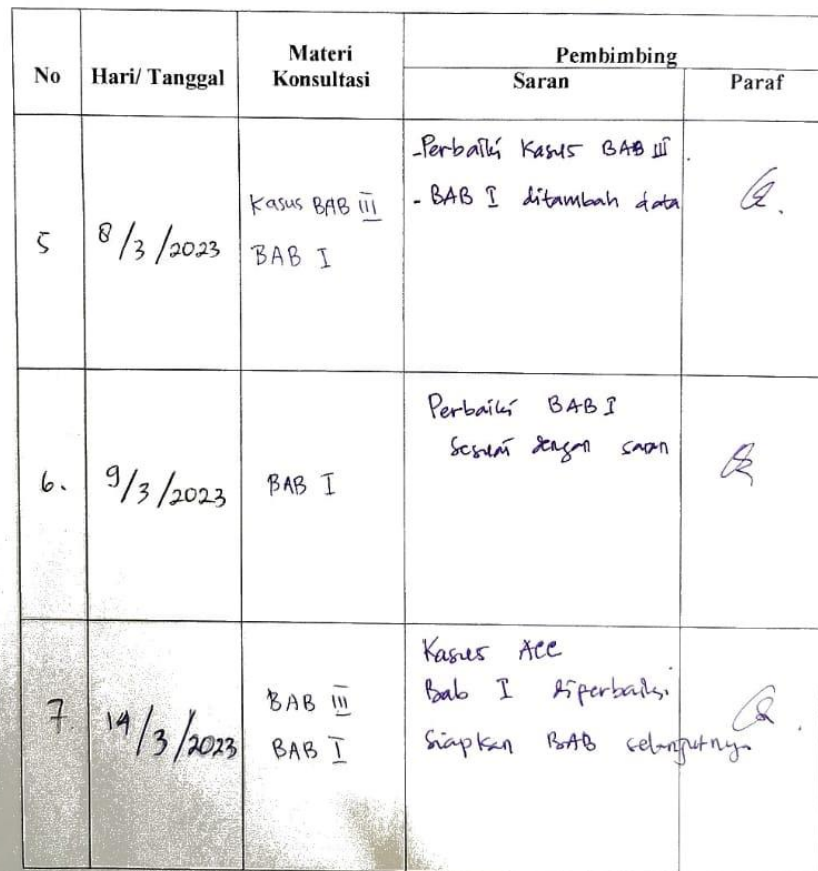 No Hari/ Tanggal Materi Konsultasi Pembimbing
Saran Paraf
5 8/3/2023 Kasus BAB III
BAB I
-Perbaiki Kasus BAB III.
- BAB I ditambah data
6. 9/3/2023 BAB I
Perbaiki BAB I
Sesuai dengan saran
7. 14/3/2023 BAB III
BAB I
Kasus Acc
Bab I diperbaiki.
Siapkan BAB selanjutnya